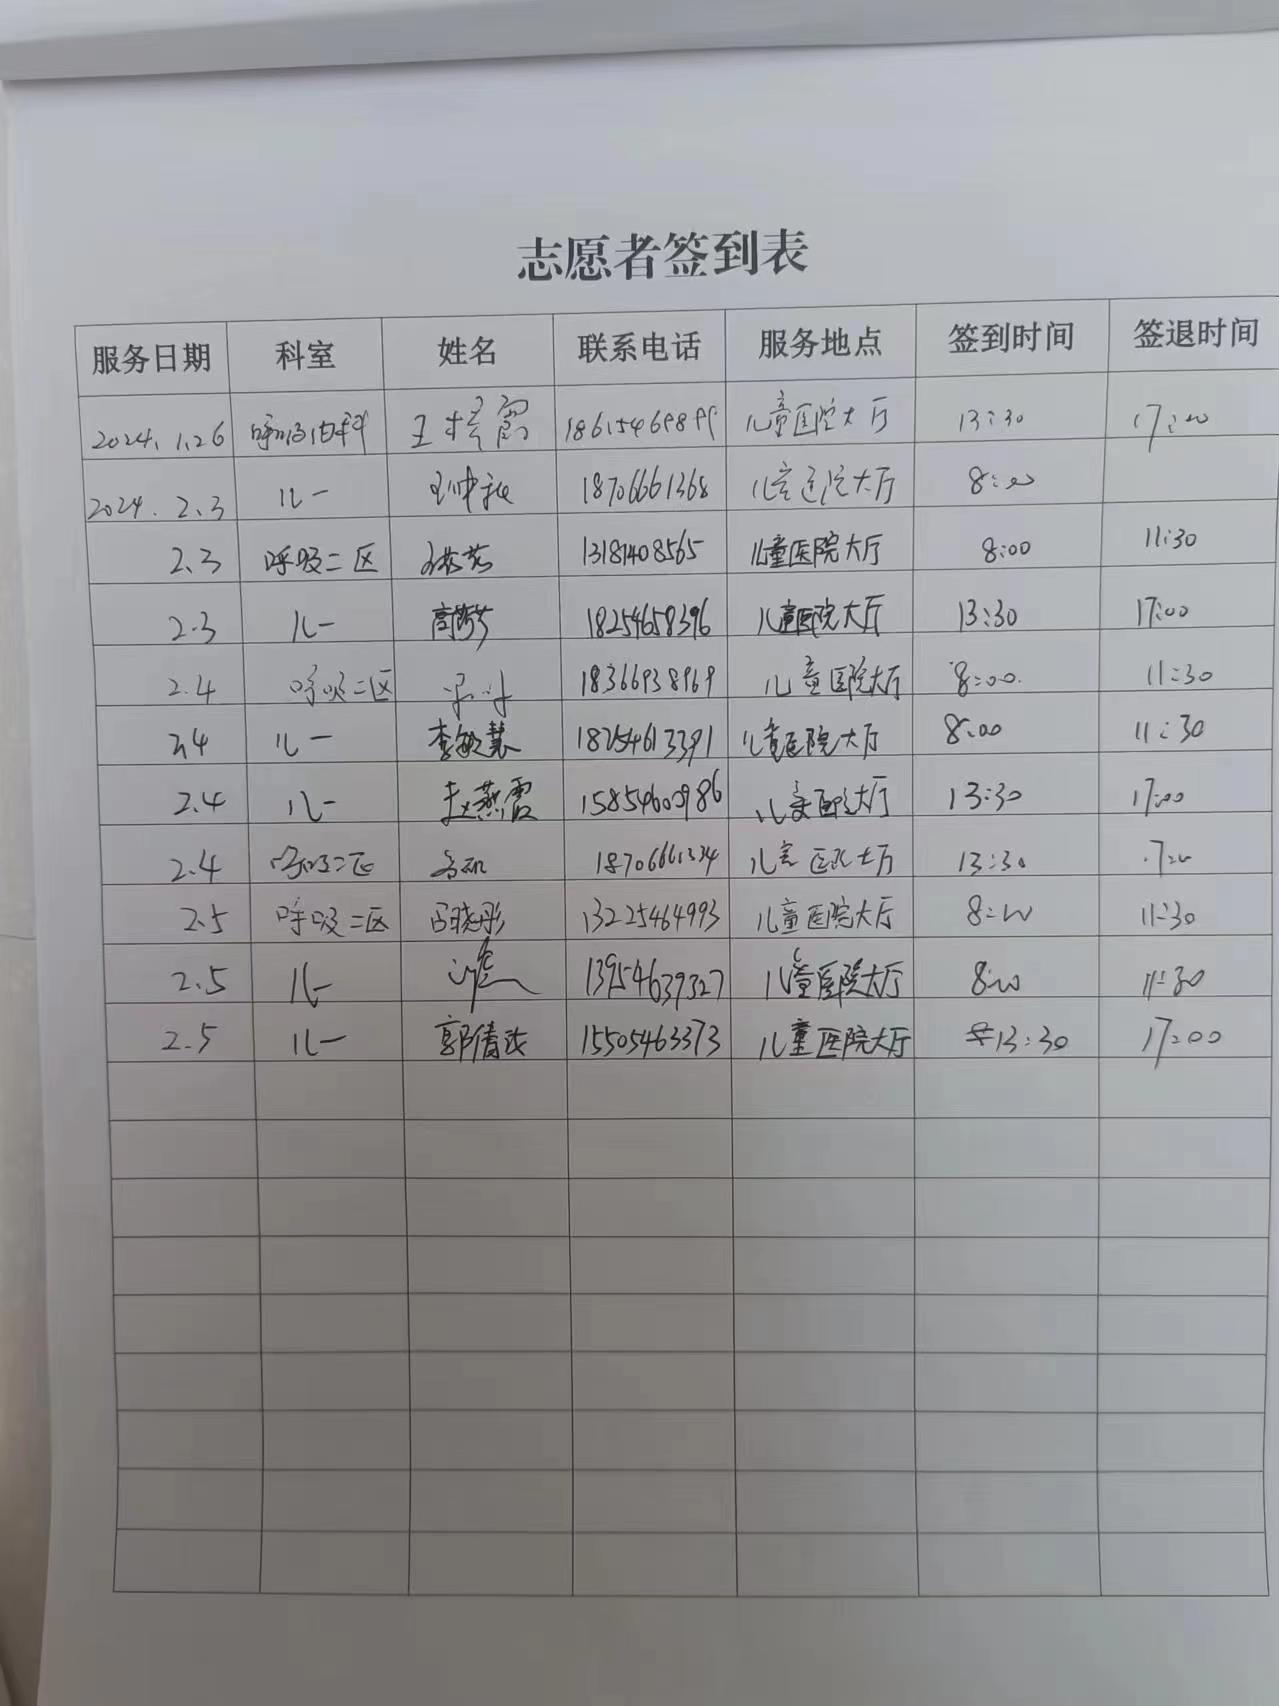 志愿者签到表
服务日期 科室 姓名 联系电话 服务地点 签到时间 签退时间
2024.1.26 呼吸内科 王 霞 儿童医院大厅 13:30 17:00
2024.2.3 儿一 18706661368 儿童医院大厅 8:00
2.3 呼吸二区 13181408565 儿童医院大厅 8:00 11:30
2.3 儿一 高 18254658396 儿童医院大厅 13:30 17:00
2.4 呼吸二区 18366938969 儿童医院大厅 8:00 11:30
2.4 儿一 李敏慧 18254613391 儿童医院大厅 8:00 11:30
2.4 儿一 赵燕霞 15854600986 儿童医院大厅 13:30 17:00
2.4 呼吸二区 18706661334 儿童医院大厅 13:30
2.5 呼吸二区 晓彤 13225464993 儿童医院大厅 8:00 11:30
2.5 儿一 13954639327 儿童医院大厅 8:00 11:30
2.5 儿一 郭倩 15505463373 儿童医院大厅 13:30 17:00